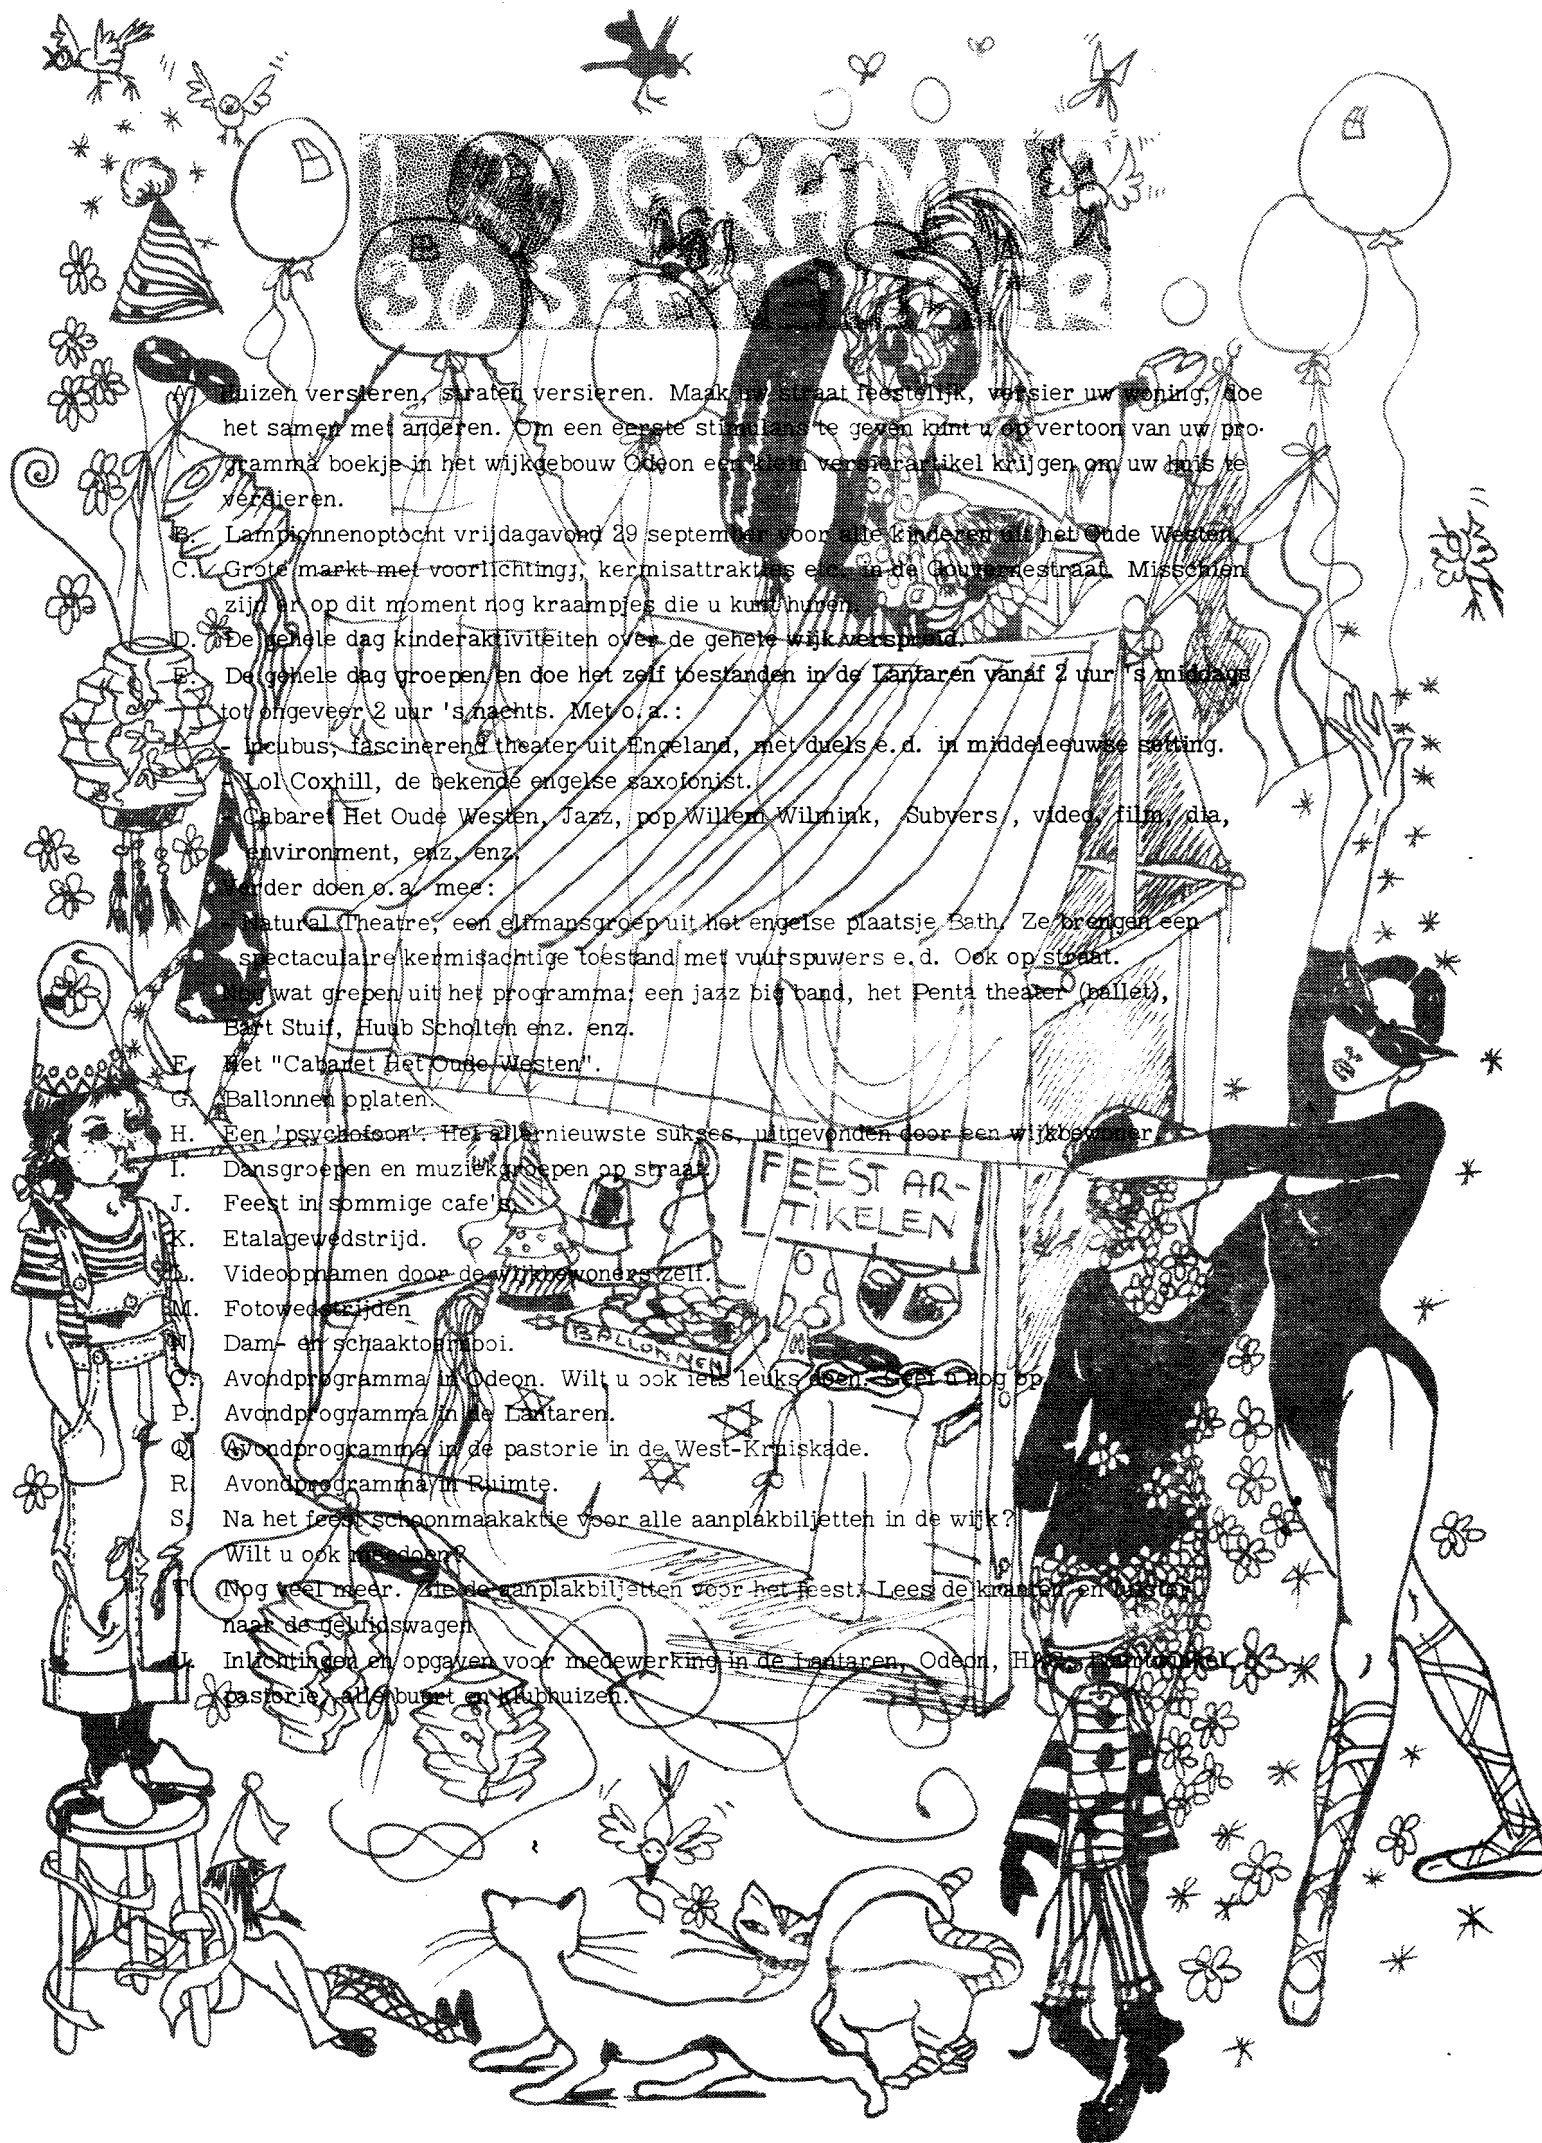 PROGRAMMA
30 SEPTEMBER
A. Huizen versieren, straten versieren. Maak uw straat feestelijk, versier uw woning, doe
het samen met anderen. Om een eerste stimulans te geven kunt u op vertoon van uw pro-
gramma boekje in het wijkgebouw Odeon een klein versierartikel krijgen om uw huis te
versieren.
B. Lampionnenoptocht vrijdagavond 29 september voor alle kinderen uit het Oude Westen.
C. Grote markt met voorlichting, kermisattrakties etc. in de Gouvernestraat. Misschien
zijn er op dit moment nog kraampjes die u kunt huren.
D. De gehele dag kinderaktiviteiten over de gehele wijk verspreid.
E. De gehele dag groepen en doe het zelf toestanden in de Lantaren vanaf 2 uur 's middags
tot ongeveer 2 uur 's nachts. Met o.a.:
- Incubus, fascinerend theater uit Engeland, met duels e.d. in middeleeuwse setting.
- Lol Coxhill, de bekende engelse saxofonist.
- Cabaret Het Oude Westen, Jazz, pop Willem Wilmink, Subvers, video, film, dia,
environment, enz. enz.
Verder doen o.a. mee:
- Natural Theatre, een elfmansgroep uit het engelse plaatsje Bath. Ze brengen een
spectaculaire kermisachtige toestand met vuurspuwers e.d. Ook op straat.
Nog wat grepen uit het programma: een jazz big band, het Penta theater (ballet),
Bart Stuif, Huub Scholten enz. enz.
F. Het "Cabaret Het Oude Westen".
G. Ballonnen oplaten.
H. Een 'psychofoon'. Het allernieuwste sukses, uitgevonden door een wijkbewoner.
I. Dansgroepen en muziekgroepen op straat.
J. Feest in sommige cafe's.
K. Etalagewedstrijd.
L. Videoopnamen door de wijkbewoners zelf.
M. Fotowedstrijden
N. Dam- en schaaktournooi.
O. Avondprogramma in Odeon. Wilt u ook iets leuks doen. Geef u nog op.
P. Avondprogramma in de Lantaren.
Q. Avondprogramma in de pastorie in de West-Kruiskade.
R. Avondprogramma in Ruimte.
S. Na het feest schoonmaakaktie voor alle aanplakbiljetten in de wijk?
Wilt u ook meedoen?
T. Nog veel meer. Zie de aanplakbiljetten voor het feest. Lees de kranten en luister
naar de geluidswagen
U. Inlichtingen en opgaven voor medewerking in de Lantaren, Odeon,
pastorie, alle buurt en klubhuizen.
FEEST AR-
TIKELEN
BALLONNEN